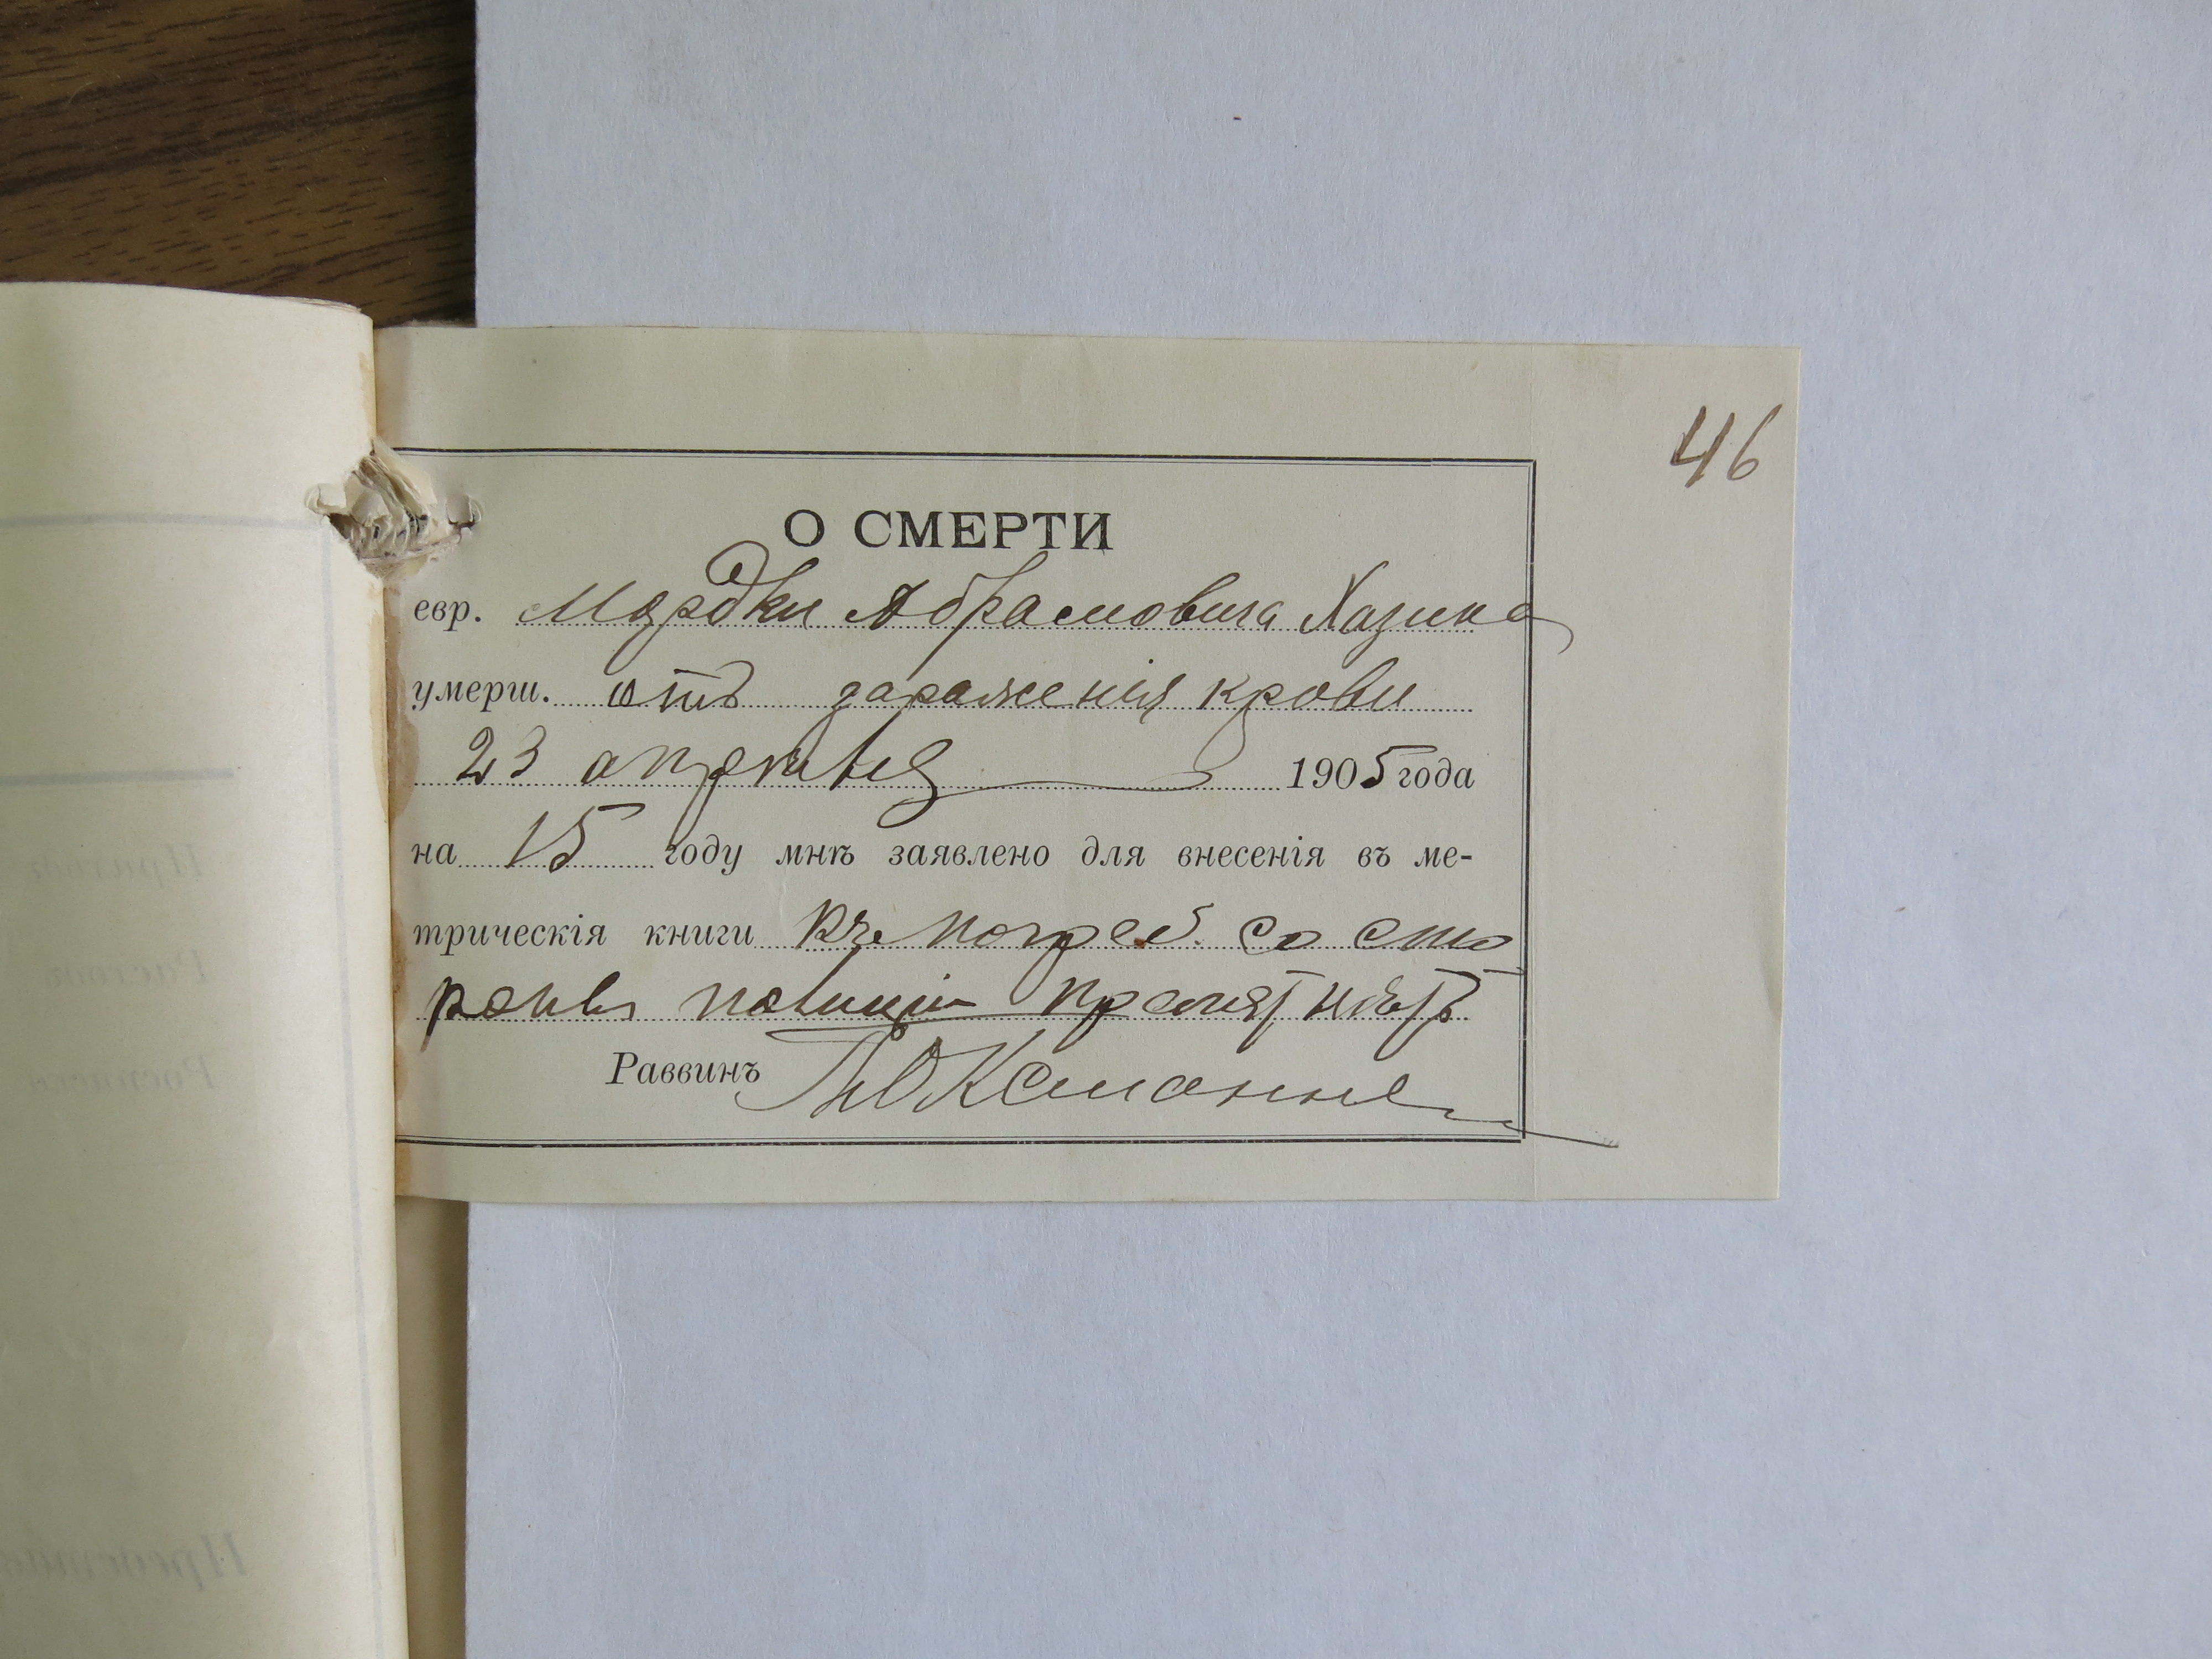 46
О СМЕРТИ
евр. Мордки Абрамовича Хазина
умерш. отъ зараженія крови
23 апрѣля 1905 года
на 15 году мнѣ заявлено для внесенія въ ме-
трическія книги Къ погреб. со сто
роны полиціи препят. нѣтъ
Раввинъ